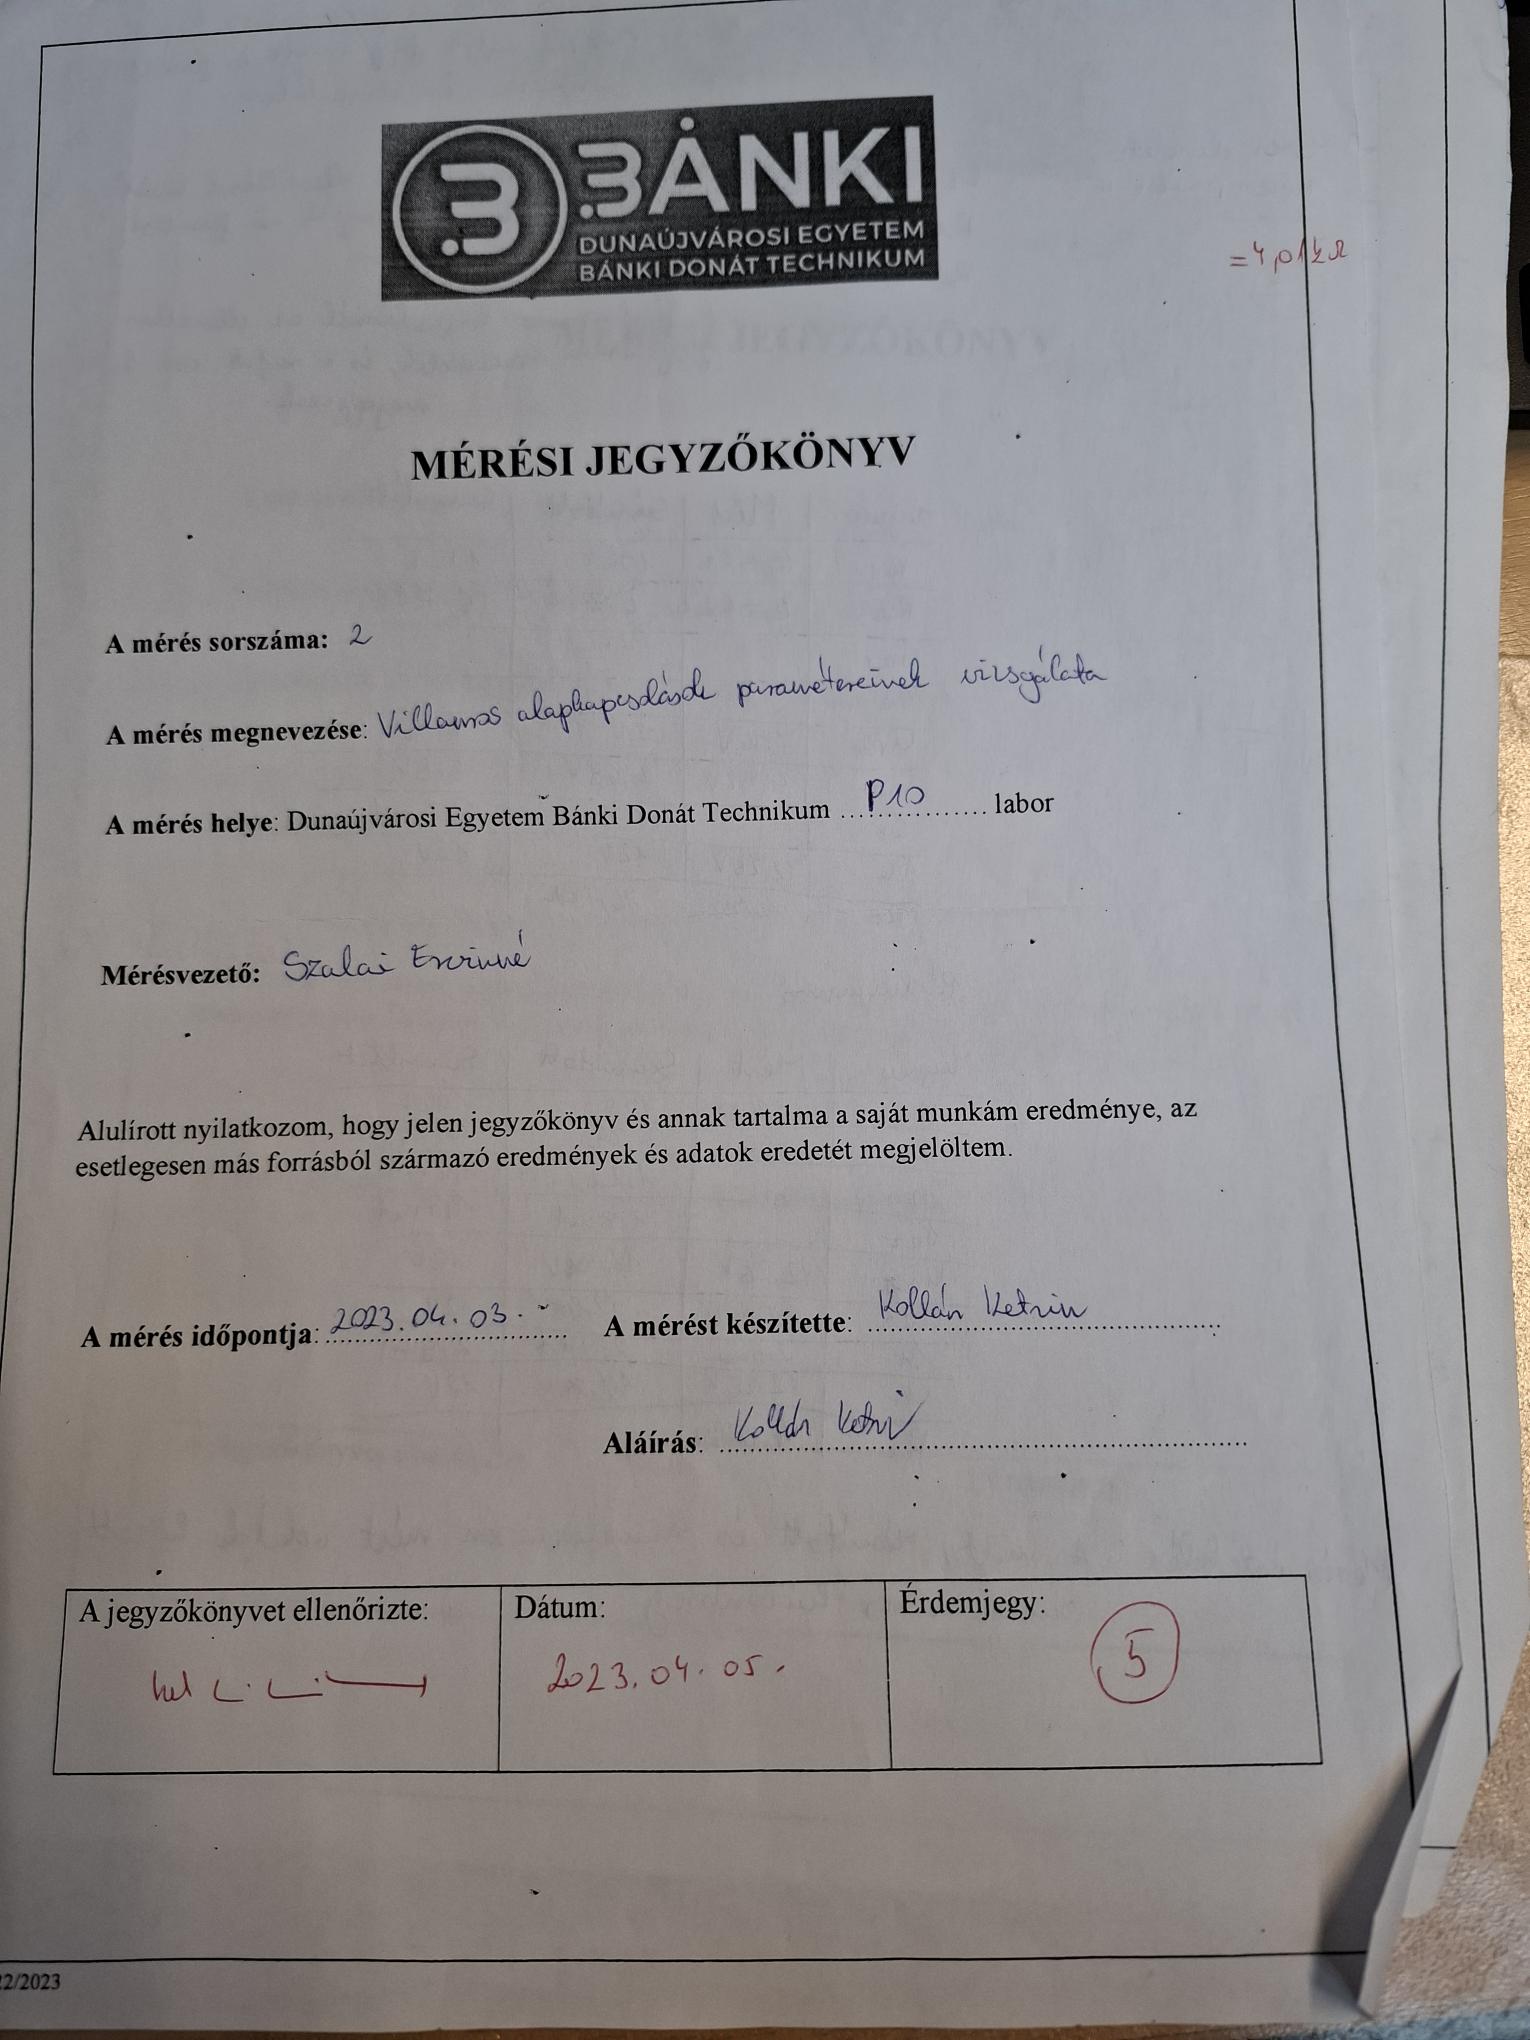 BÁNKI
DUNAÚJVÁROSI EGYETEM
BÁNKI DONÁT TECHNIKUM
=4,01kΩ
MÉRÉSI JEGYZŐKÖNYV
A mérés sorszáma: 2
A mérés megnevezése: Villamos alapkapcsolások paramétereinek vizsgálata
A mérés helye: Dunaújvárosi Egyetem Bánki Donát Technikum ...P10... labor
Mérésvezető: Szalai Ervinné
Alulírott nyilatkozom, hogy jelen jegyzőkönyv és annak tartalma a saját munkám eredménye, az
esetlegesen más forrásból származó eredmények és adatok eredetét megjelöltem.
A mérés időpontja: 2023.04.03. A mérést készítette: Kollár Ketrin
Aláírás: Kollár Ketrin
A jegyzőkönyvet ellenőrizte: Dátum: Érdemjegy:
2023.04.05. 5
22/2023